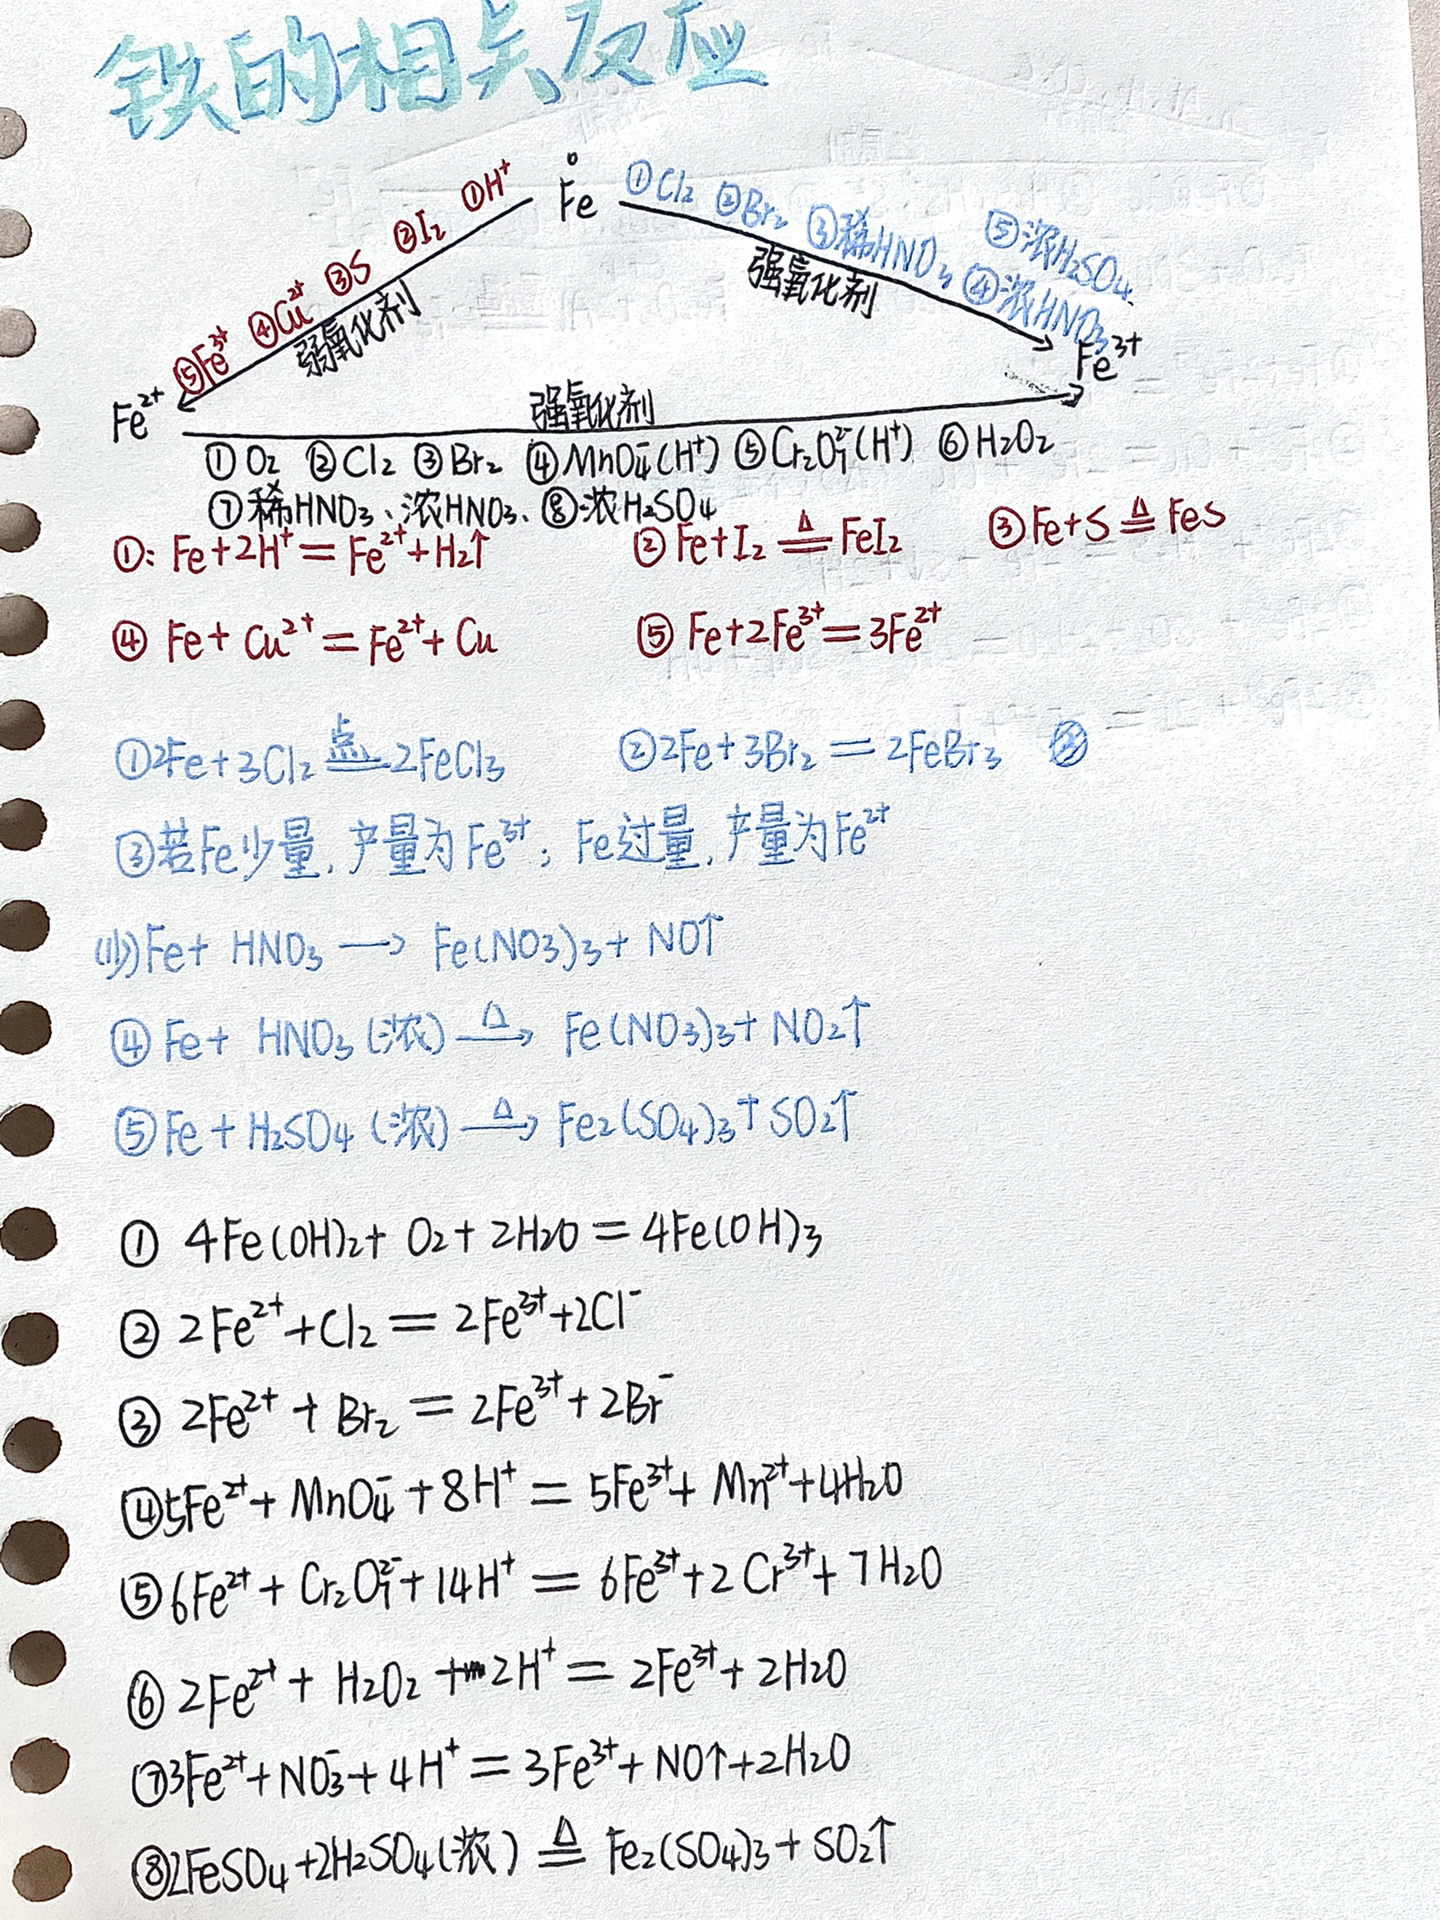 铁的相关反应
①H⁺ Fe⁰ ①Cl₂ ②Br₂ ③稀HNO₃ ④浓HNO₃ ⑤浓H₂SO₄
⑤Fe³⁺ ④Cu²⁺ ③S ②I₂
弱氧化剂 强氧化剂
Fe²⁺ 强氧化剂 Fe³⁺
①O₂ ②Cl₂ ③Br₂ ④MnO₄⁻(H⁺) ⑤Cr₂O₇²⁻(H⁺) ⑥H₂O₂
⑦稀HNO₃、浓HNO₃、⑧浓H₂SO₄
①: Fe+2H⁺=Fe²⁺+H₂↑ ②Fe+I₂ ≜ FeI₂ ③Fe+S ≜ FeS
④ Fe+Cu²⁺=Fe²⁺+Cu ⑤ Fe+2Fe³⁺=3Fe²⁺
①2Fe+3Cl₂ 点 = 2FeCl₃ ②2Fe+3Br₂=2FeBr₃
③若Fe少量,产量为Fe³⁺;Fe过量,产量为Fe²⁺
(少)Fe+ HNO₃ → Fe(NO₃)₃+NO↑
④Fe+ HNO₃(浓) △→ Fe(NO₃)₃+NO₂↑
⑤Fe+H₂SO₄(浓) △→ Fe₂(SO₄)₃+SO₂↑
① 4Fe(OH)₂+O₂+2H₂O=4Fe(OH)₃
② 2Fe²⁺+Cl₂=2Fe³⁺+2Cl⁻
③ 2Fe²⁺+Br₂=2Fe³⁺+2Br⁻
④5Fe²⁺+MnO₄⁻+8H⁺=5Fe³⁺+Mn²⁺+4H₂O
⑤6Fe²⁺+Cr₂O₇²⁻+14H⁺=6Fe³⁺+2Cr³⁺+7H₂O
⑥2Fe²⁺+H₂O₂+2H⁺=2Fe³⁺+2H₂O
⑦3Fe²⁺+NO₃⁻+4H⁺=3Fe³⁺+NO↑+2H₂O
⑧2FeSO₄+2H₂SO₄(浓) ≜ Fe₂(SO₄)₃+SO₂↑